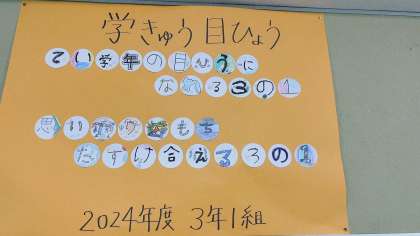 学きゅう目ひょう
てい学年の目ひょうに
なれる3の1
思いやりの気もち
たすけ合える3の1
2024年度 3年1組